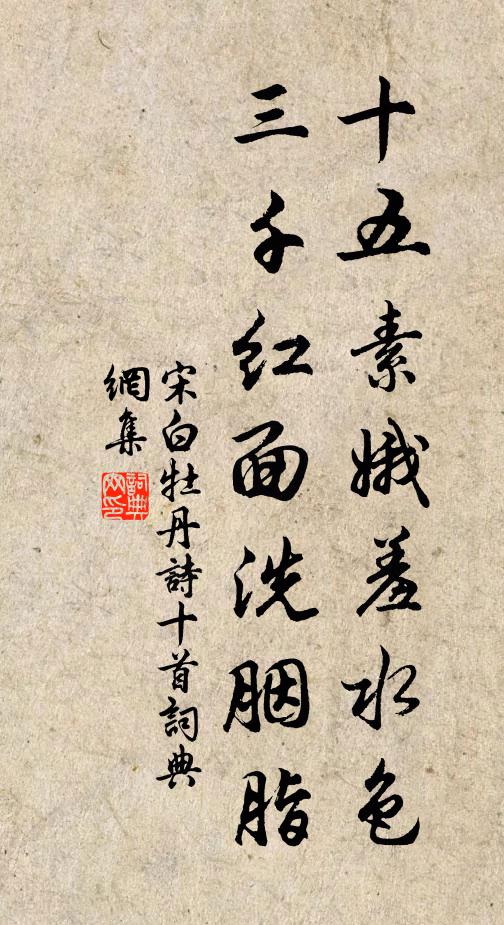 十五素娥羞水色
三千红面洗胭脂
宋白牡丹詩十首詞典
網集
詞典
网印